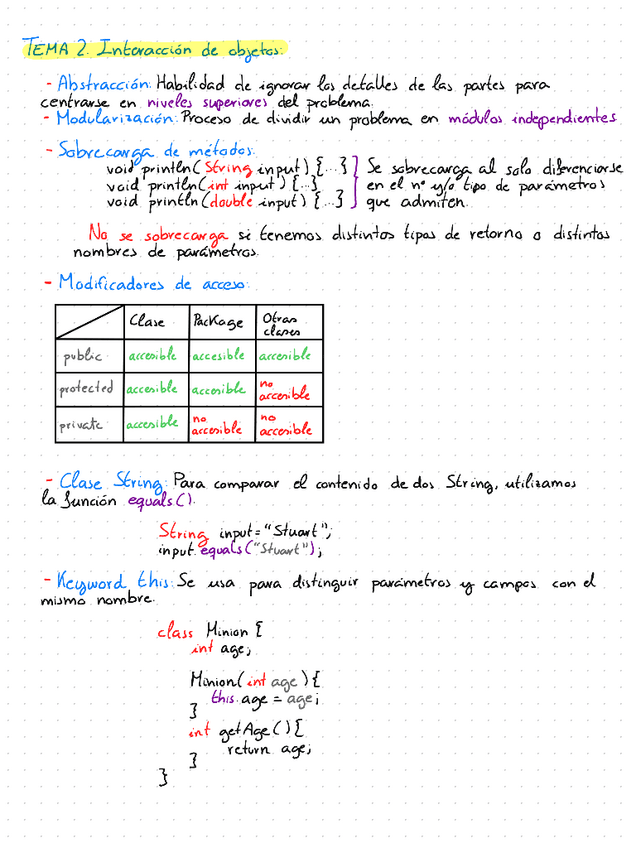 TEMA 2. Interacción de objetos:
- Abstracción: Habilidad de ignorar los detalles de las partes para
centrarse en niveles superiores del problema.
- Modularización: Proceso de dividir un problema en módulos independientes
- Sobrecarga de métodos:
void println( String input) {...} Se sobrecarga al solo diferenciarse
void println(int input) {...} en el nº y/o tipo de parámetros
void println(double input) {...} que admiten.
No se sobrecarga si tenemos distintos tipos de retorno o distintos
nombres de parámetros.
- Modificadores de acceso:
Clase Package Otras
clases
public accesible accesible accesible
protected accesible accesible no
accesible
private accesible no accesible no accesible
- Clase String: Para comparar el contenido de dos String, utilizamos
la función equals().
String input = "Stuart";
input.equals("Stuart");
- Keyword this: Se usa para distinguir parámetros y campos con el
mismo nombre.
class Minion {
int age;
Minion( int age ) {
this.age = age;
}
int getAge () {
return age;
}
}